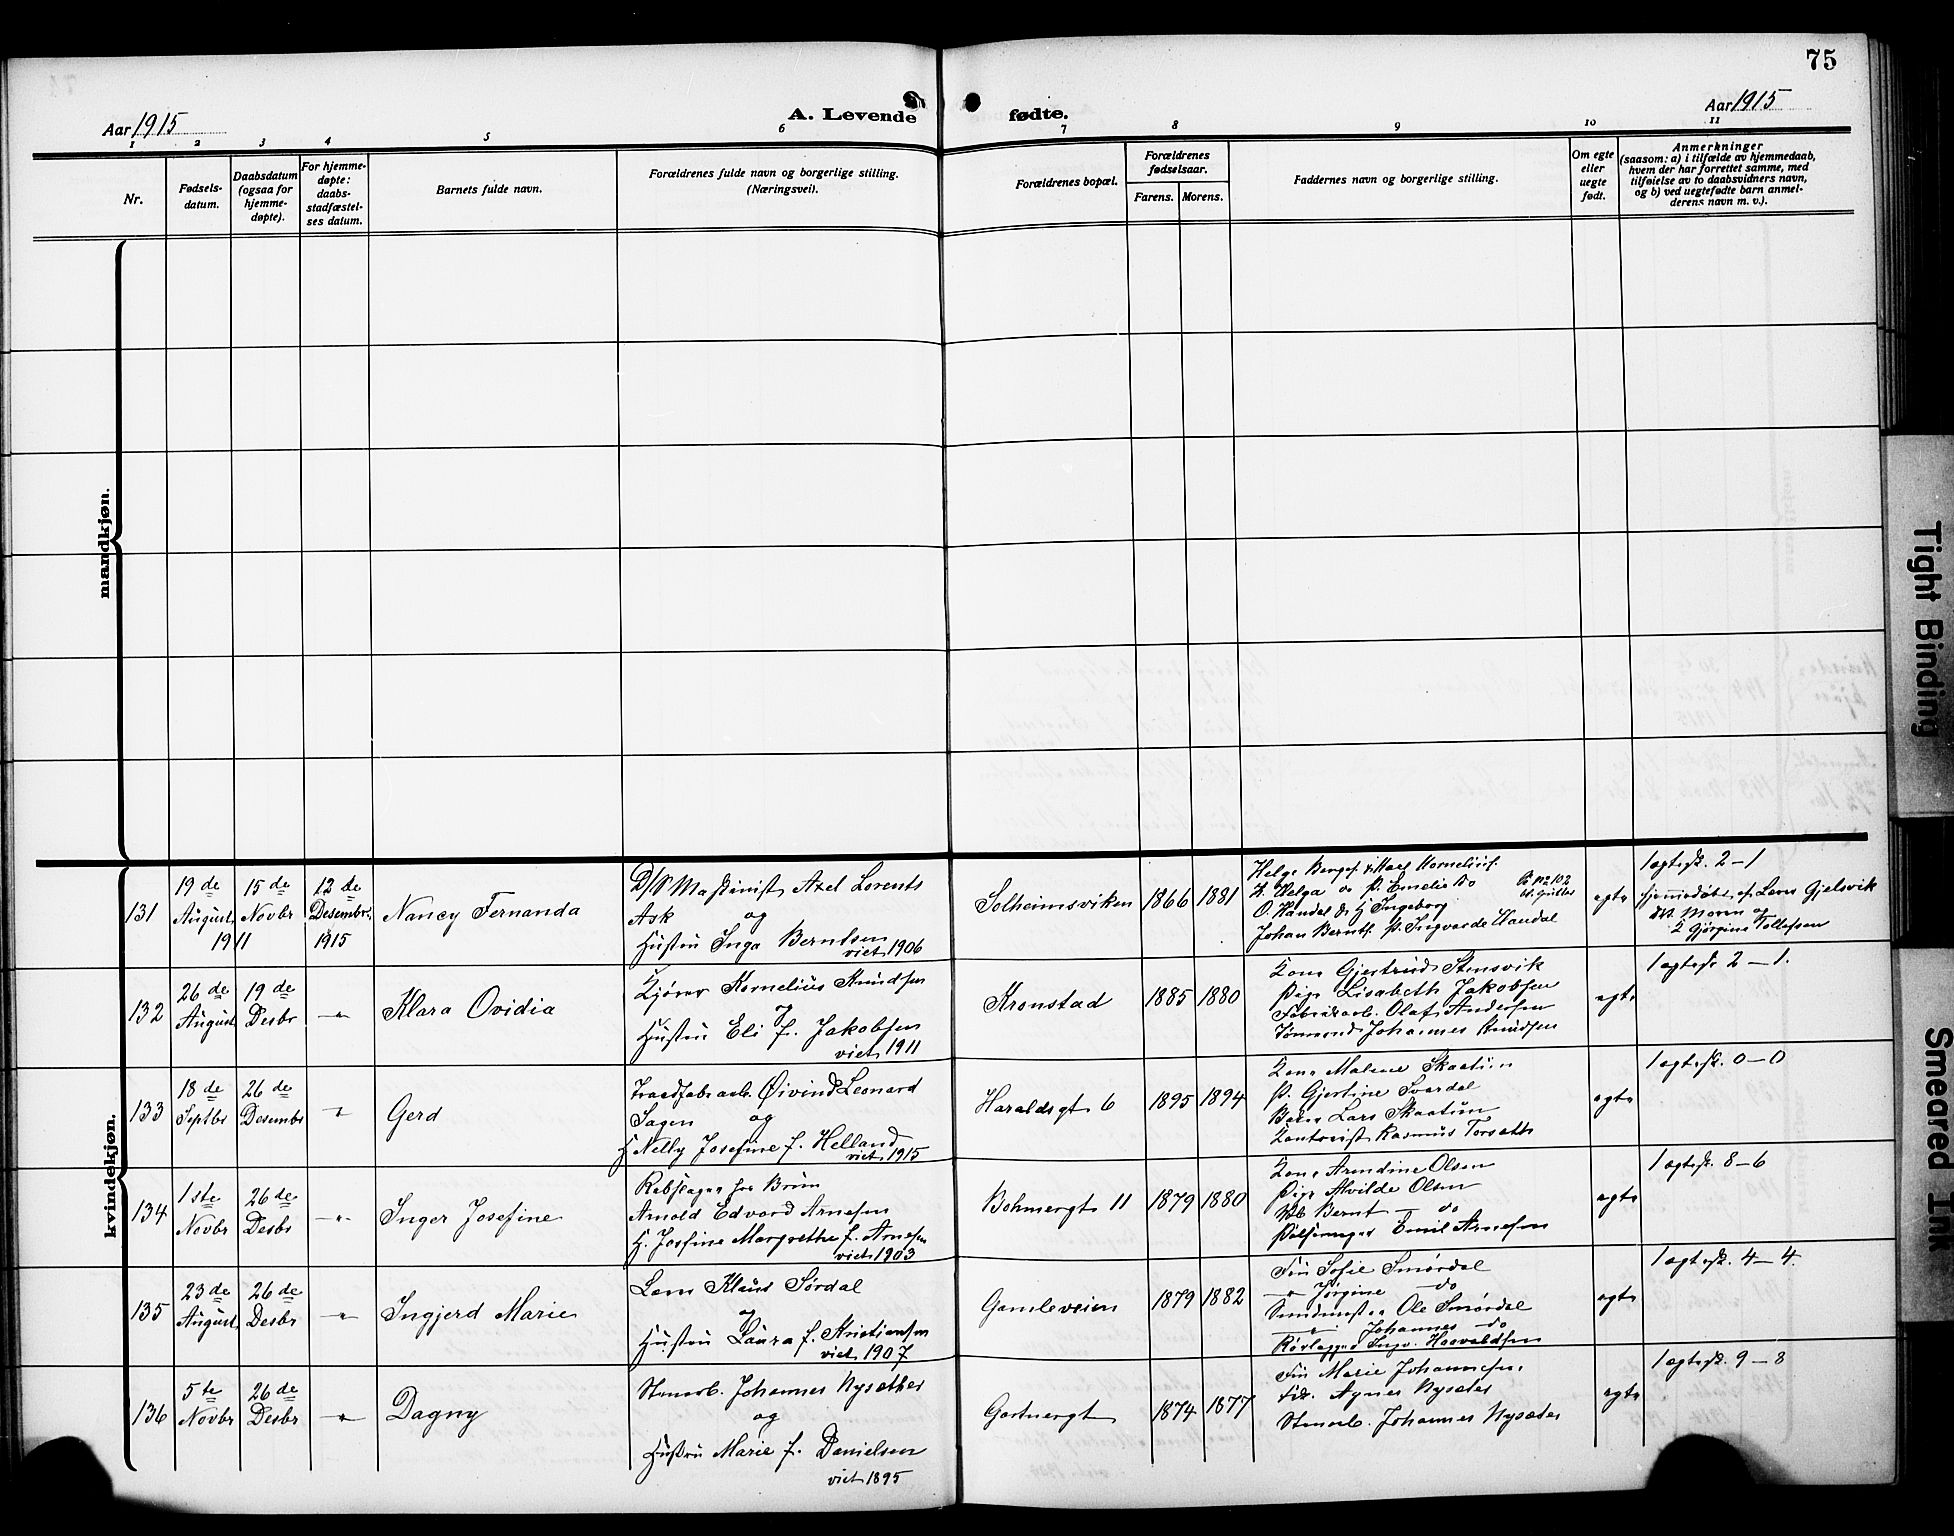 75
Aar 1915
A. Levende fødte.
Aar 1915
1 2 3 4 5 6 7 8 9 10 11
Nr.
Fødsels-
datum.
Daabsdatum
(ogsaa for
hjemme-
døpte).
For hjemme-
døpte:
daabs-
stadfæstel-
ses datum.
Barnets fulde navn.
Forældrenes fulde navn og borgerlige stilling.
(Næringsvei).
Forældrenes bopæl.
Forældrenes
fødselsaar.
Farens. Morens.
Faddernes navn og borgerlige stilling.
Om egte
eller
uegte
født.
Anmerkninger
(saasom: a) i tilfælde av hjemmedaab,
hvem der har forrettet samme, med
tilføielse av to daabsvidners navn,
og b) ved uegtefødte barn anmel-
derens navn m. v.).
mandkjøn.
kvindekjøn.
131
19de
August
1911
15de
Novbr
12de
Desembr.
1915
Nancy Fernanda
D/S Maskinist Axel Lorents
Ask og
Hustru Inga Berntsen
viet 1906
Solheimsviken
1866
1881
O. Handal do H Ingeborg
Johan Bernts. P. Ingvarda Handal
egte
1 egtesk. 2-1
hjemmedøbt af Lars Gjelsvik
Moren og
Gjørgine Tollefsen
132
26de
August
19de
Desbr
-"-
Klara Ovidia
Kjører Kornelius Knudsen
og
Hustru Eli f. Jakobsen
viet 1911
Kronstad
1885
1880
Kone Gjertrud Stensvik
Pige Lisabeth Jakobsen
Fabrikarb. Olaf Andersen
Tømmermd Johannes Knudsen
egte
1 egtesk. 2-1.
133
18de
Septbr
26de
Desembr
"
Gerd
Traadfabr arb. Øivind Leonard
Sagen og
H Nelly Josefine f. Helland
viet 1915
Haraldsgt 6
1895
1894
Kone Malene Skaatun
P. Gjertine Svardal
Lars Skaatun
Kontorist Rasmus Torseth
egte
1 egtesk. 0-0
134
1ste
Novbr
26de
Desbr
-"-
Inger Josefine
Rebslager
Arnold Edvard Arnesen
H. Josfine Margrethe f. Arnesen
viet 1903
Bohmergt 11
1879
1880
Kone Arndine Olsen
Pige Alvilde Olsen
Bernt do
Pølsemager Emil Arnesen
egte
1 egtesk. 8-6
135
23de
August
26de
Desbr
-"-
Ingjerd Marie
Lars Klaus Sørdal
og
Hustru Laura f. Kristiansen
viet 1907
Gamleveien
1879
1882
Frk Sofie Smørdal
-"- Jørgine do
Ole Smørdal
-"- Johannes do
Rørlægger Ingv. Haavaldsen
egte
1 egtesk. 4-4.
136
5te
Novbr
26de
Desbr
-"-
Dagny
Stenarb. Johannes Nysæther
og
Hustru Marie f. Danielsen
viet 1895
Gartnergt
1874
1877
Marie Johannesen
Agnes Nysæter
Stenarb. Johannes Nysæter
egte
1 egtesk. 9-8
Tight Binding
Smeared Ink